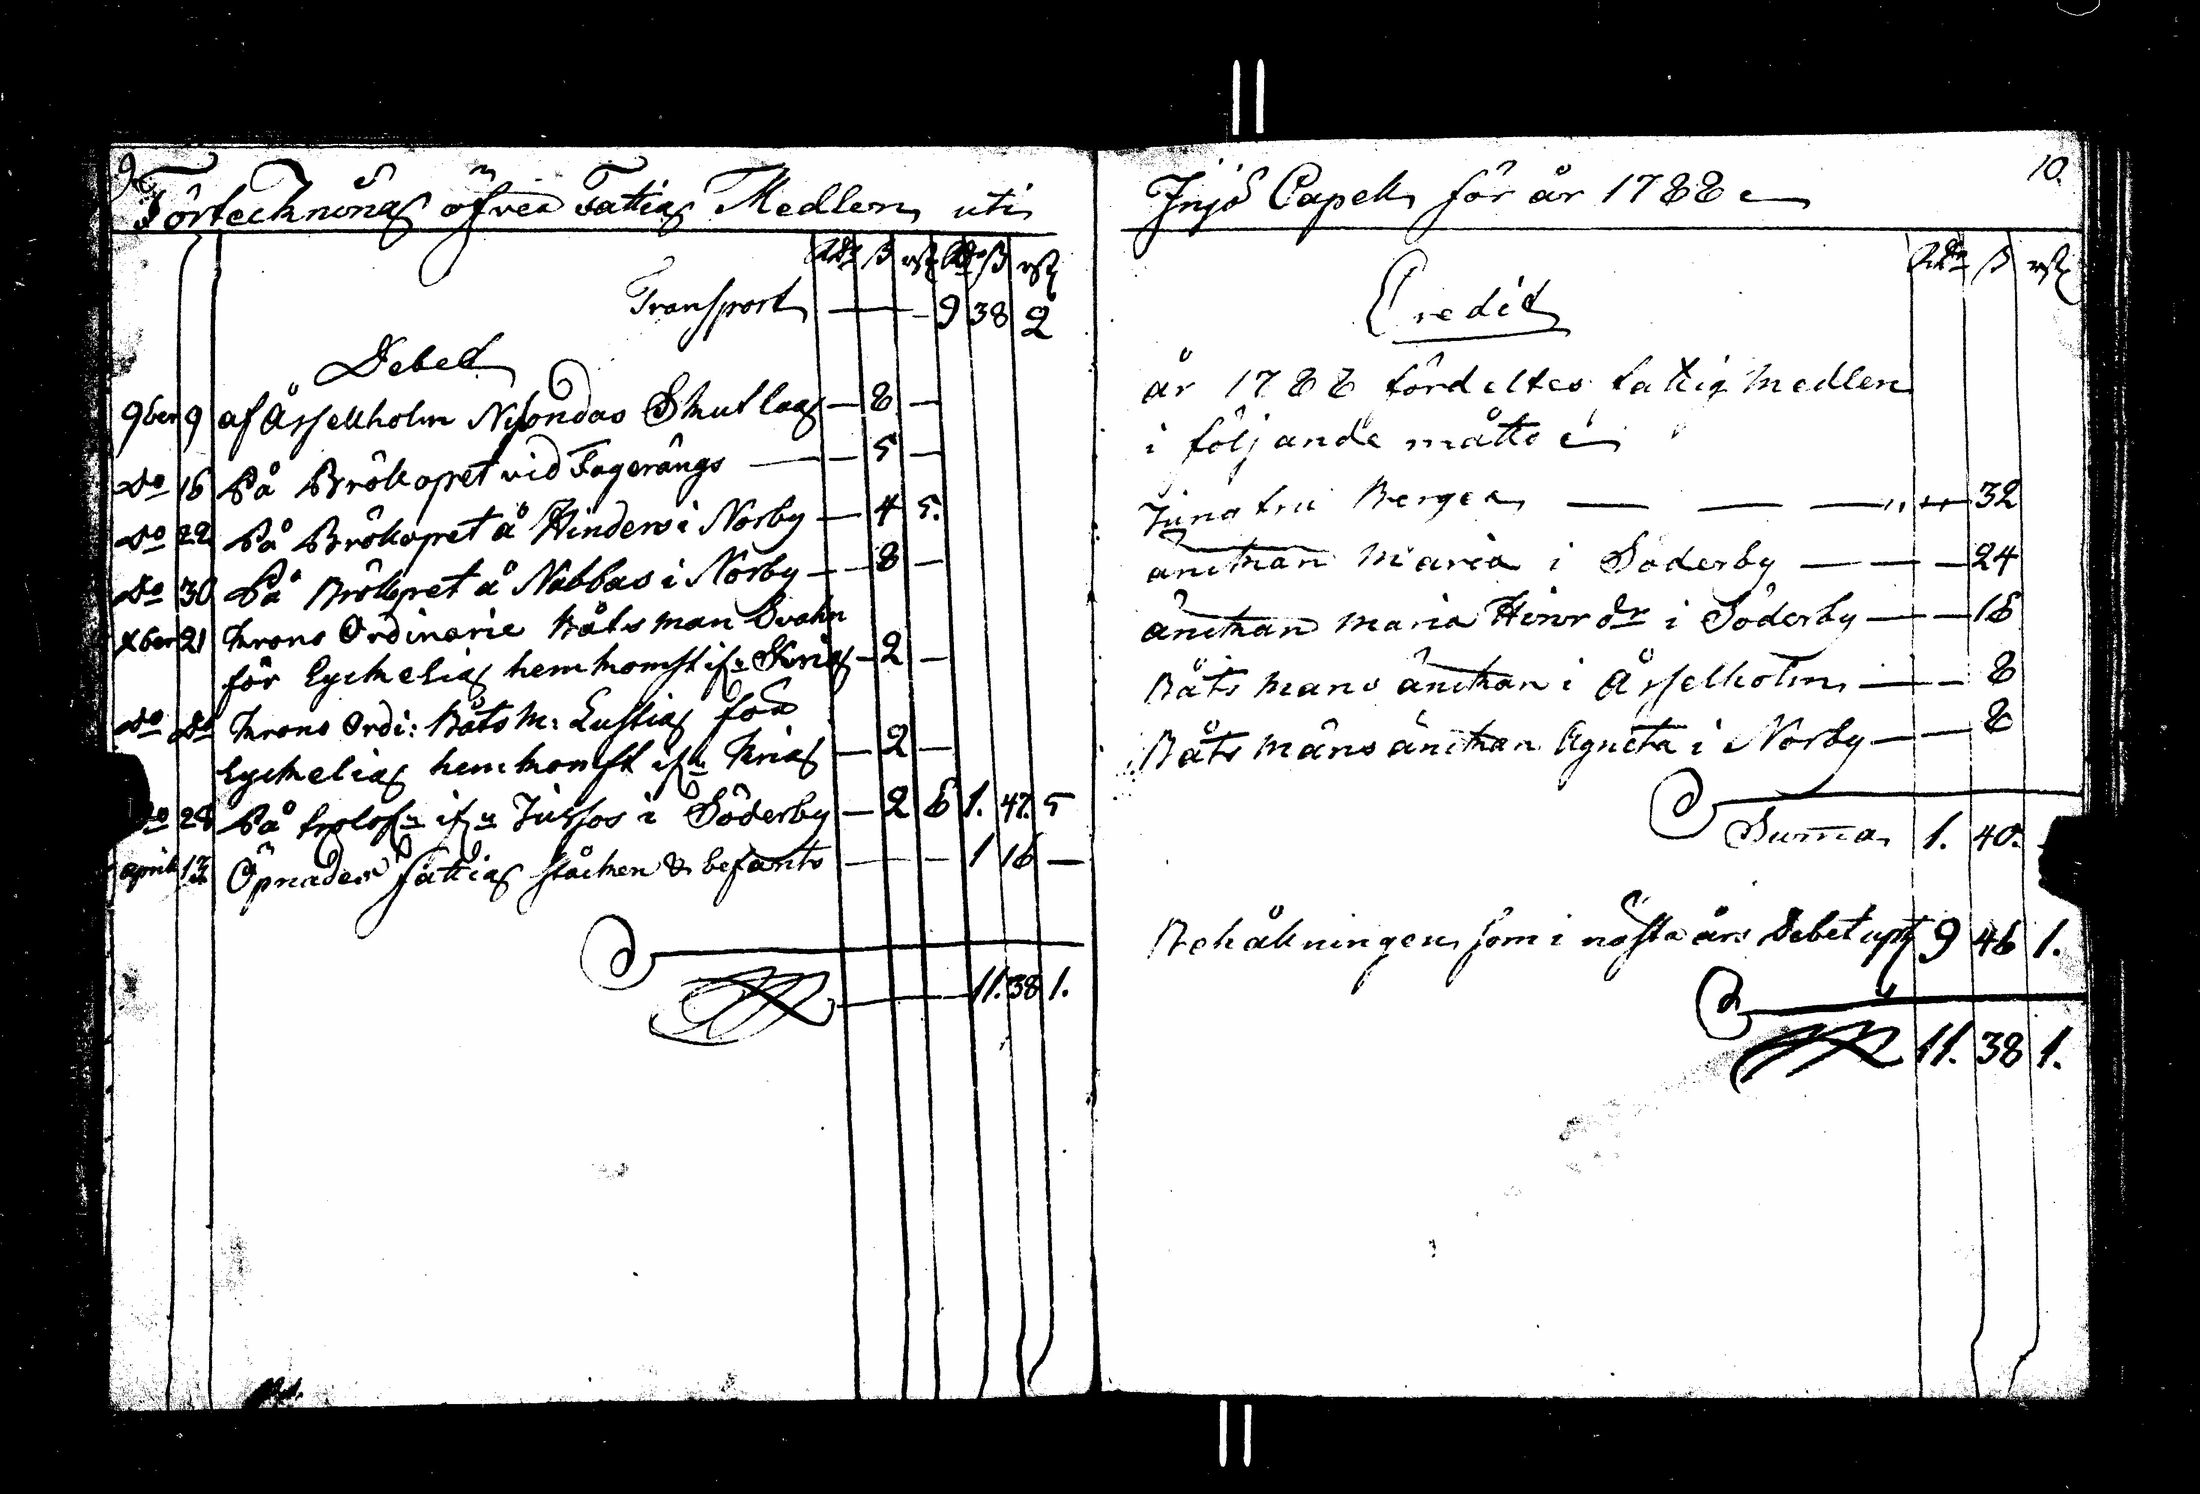 9.
Förteckning öfver Fattig Medlen uti
Rdr ß rst Rdr ß rst
Transport — — 9 38 2
Debet
9ber 9 af Åssellholm Skutlag — 8 —
do 16 På Brölopet vid Fagerängs — 5 —
do 22 På Brölopet å Hinders i Norby — 4 5.
do 30 På Brölopet å Nabbas i Norby — 8 —
xber 21 krons Ordinarie Båtsman Svahn
för lyckelig hemkomst ifrn Krig — 2 —
do do krons Ordi: Båtsm: Lustig för
lyckelig hemkomst ifrn krig — 2 —
do 28 På ifrn Jussos i Söderby — 2 6 1. 47. 5
april 17 Öpnades fattig ståcken & befants — — — 1 16 —
— — — 11. 38 1.
10.
Injö Capell för år 1788
Rdr ß rst
Credit
år 1788 fördeltes fattig medlen
i följande måtto
Jungfru Berger — — — " " 32
änckan Maria i Söderby — — — 24
änckan Maria Hinrdr i Söderby — — 16
Båtsmans änckan i Åsselholm — — 8
Båtsmans änckan Agneta i Norby — — 8
Suma 1. 40.
Behållningen som i nästa års Debet upt 9 46 1.
11. 38 1.